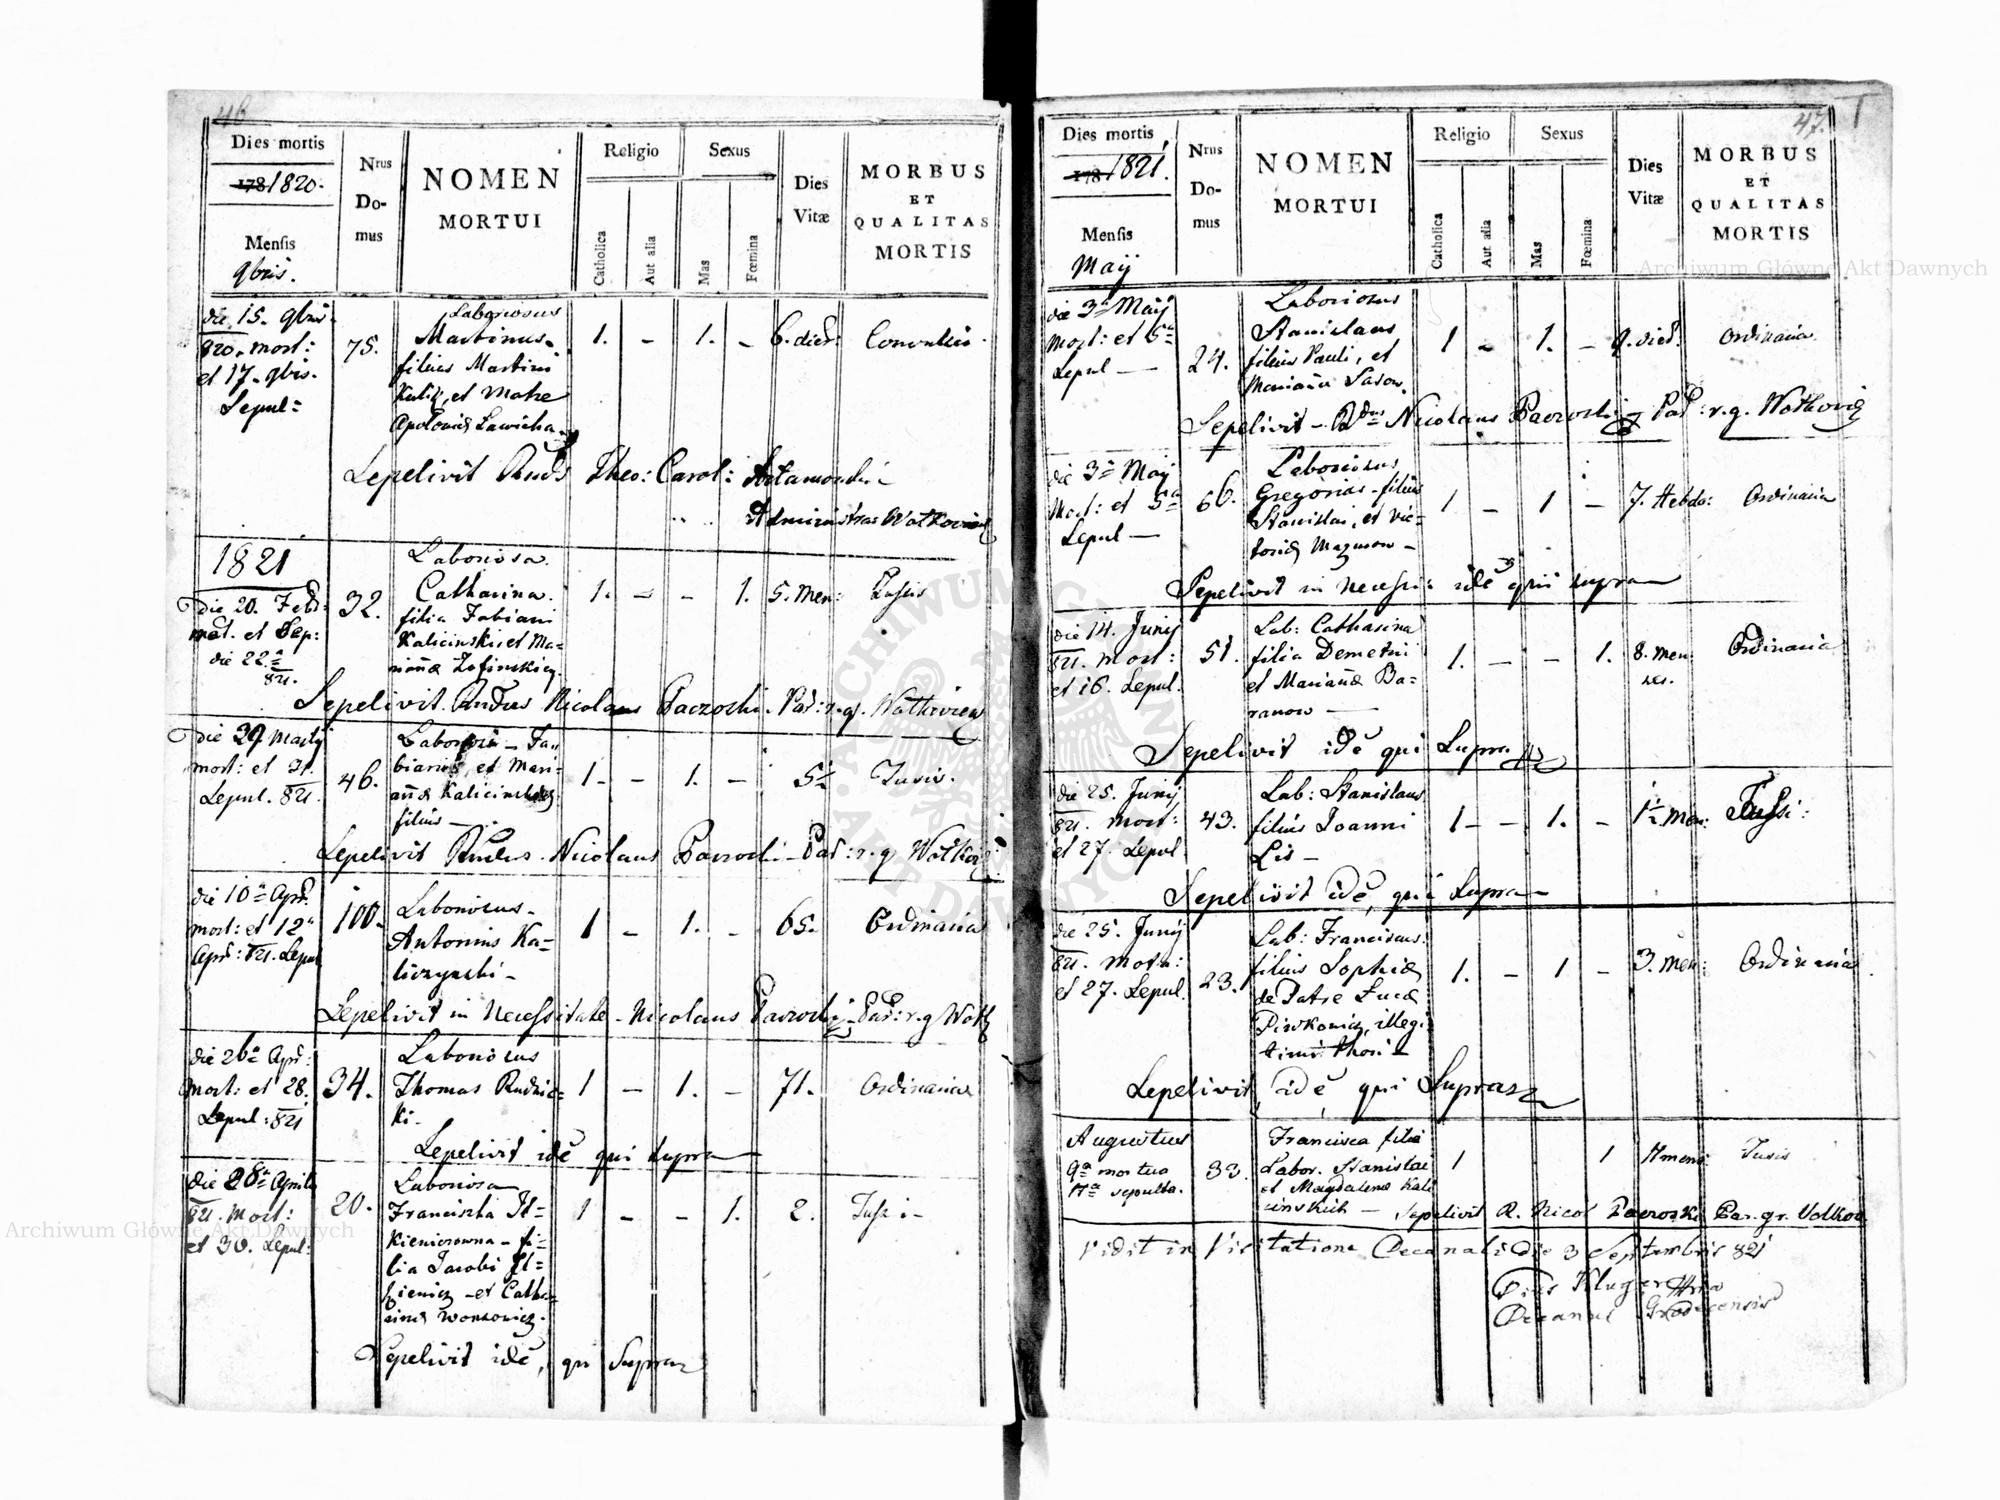 46
Dies mortis
1781820.
Mensis
9bris.
Nrus
Do-
mus
NOMEN
MORTUI
Religio
Catholica
Aut alia
Sexus
Mas
Fœmina
Dies
Vitæ
MORBUS
ET
QUALITAS
MORTIS
die 15. 9bris
820. mort:
et 17. 9bris.
Sepul:
75.
Laboriosus
Martinus
filius Martini
Kuliz, et Matre
Apolonia Lawicha
1. - 1. - 6. dier: Convulsio.
Sepelivit Rnds Theo: Carol: Artamonski
Administrar Wolkovien
1821
die 20. Febr:
mort. et Sep:
die 22a
821.
32.
Laboriosa
Catharina
filia Fabiani
Kalicinski et Ma=
rianna
1. - - 1. 5. Men: Tussis
Sepelivit Rndus Nicolaus Paczoski. Par: r. g. Wolkovien
die 29 Martij
mort: et 31.
Sepul. 821.
46.
Laboriosi - Fa=
biani, et Mari=
anna Kalicinskich
filius
1 - - 1. - 5 1/2 Tussis.
Sepelivit Rndus Nicolaus Paczoski - Par: r. g. Wolkov:
die 10a Apr.
mort: et 12a
Apr: 821. Sepul
100.
Laboriosus
Antonius Ka=
liczynski
1 - 1. - 65. Ordinaria
Sepelivit in Necessitate - Nicolaus Paczoski Par: r. g Wolk
die 26a Apr:
Mort: et 28.
Sepul: 821
34.
Laboriosus
Thomas Rudnic=
ki.
1 - 1. - 71. Ordinaria
Sepelivit idē qui supra
die 28a Aprilis
821. Mort:
et 30. Sepul:
20.
Laboriosa
Franciszka It=
kieniowna - fi=
lia Jacobi It=
kienicz - et Catha=
rina Wonsowicz.
1 - - 1. 2. Tussi
Sepelivit idē, qui Supra
47.
Dies mortis
1781821.
Mensis
Maij
Nrus
Do-
mus
NOMEN
MORTUI
Religio
Catholica
Aut alia
Sexus
Mas
Fœmina
Dies
Vitæ
MORBUS
ET
QUALITAS
MORTIS
die 3a Maij
Mort: et 5a
Sepul
24.
Laboriosus
Stanislaus
filius Pauli, et
Marianna Sasow.
1 - 1. - 9. dier. Ordinaria
Sepelivit - Rdnus Nicolaus Paczoski Par: r. g. Wolkovie
die 3a Maij
Mort: et 5a
Sepul
66.
Laboriosus
Gregorius - filius
Stanislai, et Vic=
toria Mazurow
1 - 1 - 7. Hebdo: Ordinaria
Sepelivit in necess: idē qui supra
die 14. Junij
821. Mort:
et 16. Sepul.
51.
Lab: Catharina
filia Demetri
et Marianna Ba=
ranow
1. - - 1. 8. Men
ses.
Ordinaria
Sepelivit idē qui Supra
die 25. Junij
821. Mort:
et 27. Sepul
43.
Lab: Stanislaus
filius Joanni
Lis
1 - - 1. - 1 1/2. Men: Tussi:
Sepelivit idē, qui Supra
die 25. Junij
821. Mort:
et 27. Sepul.
23.
Lab: Franciscus
filius Sophia
de Patre Luca
Piwkowicz, illegi
timi thori
1. - 1 - 3. Men: Ordinaria
Sepelivit, idē, qui Supra
Augustus
9a mortua
11a sepulta.
33.
Francisca filia
Labor. Stanislai
et Magdalena Kali
cinskich
1 1 11 mens: Tussis
Sepelivit R. Nicol Paczoski Par. gr. Volkov
Vidit in Visitatione Decanali die 3 Septembris 821
Kluger
Decanus Grodecensis
Archiwum Główne Akt Dawnych
Archiwum Główne Akt Dawnych